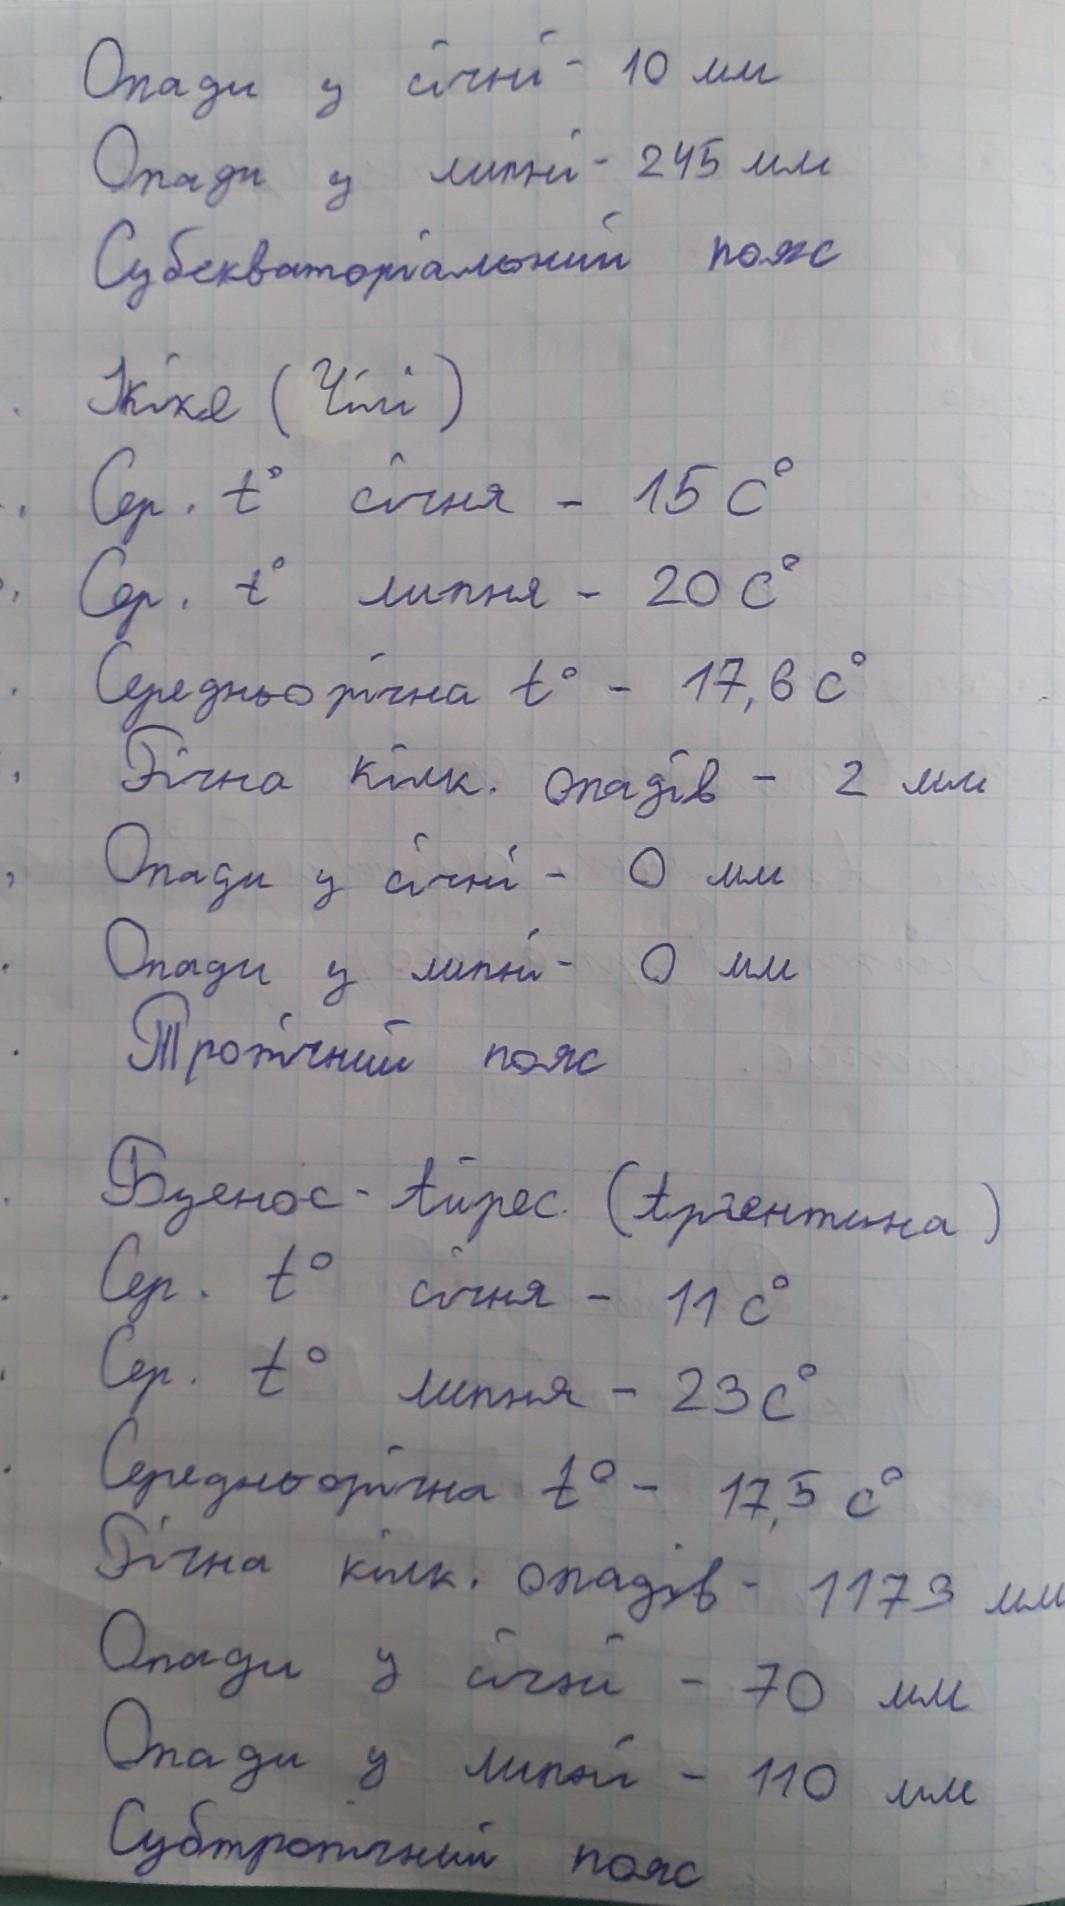 Опади у січні - 10 мм
Опади у липні - 245 мм
Субекваторіальний пояс
Ікіке (Чілі)
Сер. t° січня - 15 С°
Сер. t° липня - 20 С°
Середньорічна t° - 17,6 С°
Річна кільк. опадів - 2 мм
Опади у січні - 0 мм
Опади у липні - 0 мм
Тропічний пояс
Буенос-Айрес. (Аргентина)
Сер. t° січня - 11 С°
Сер. t° липня - 23 С°
Середньорічна t° - 17,5 С°
Річна кільк. опадів - 1173 мм
Опади у січні - 70 мм
Опади у липні - 110 мм
Субтропічний пояс